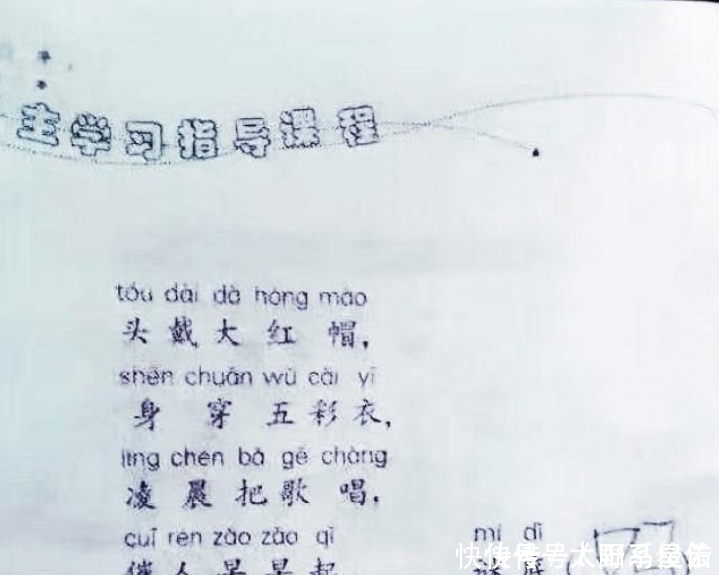 主学习指导课程
tóu dài dà hóng mào
头戴大红帽，
shēn chuān wǔ cǎi yī
身穿五彩衣，
líng chén bǎ gē chàng
凌晨把歌唱，
cuī rén zǎo zǎo qǐ mí dǐ
催人早早起